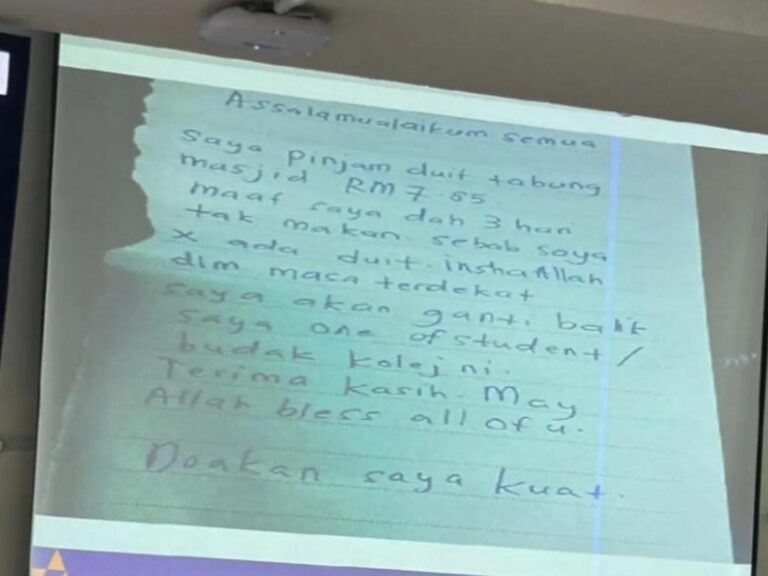 Assalamualaikum semua
saya pinjam duit tabung
masjid RM 7.55
maaf saya dah 3 hari
tak makan sebab saya
x ada duit. inshaAllah
dlm masa terdekat
saya akan ganti balik
saya one of student /
budak kolej ni.
Terima kasih. May
Allah bless all of u.
Doakan saya kuat.